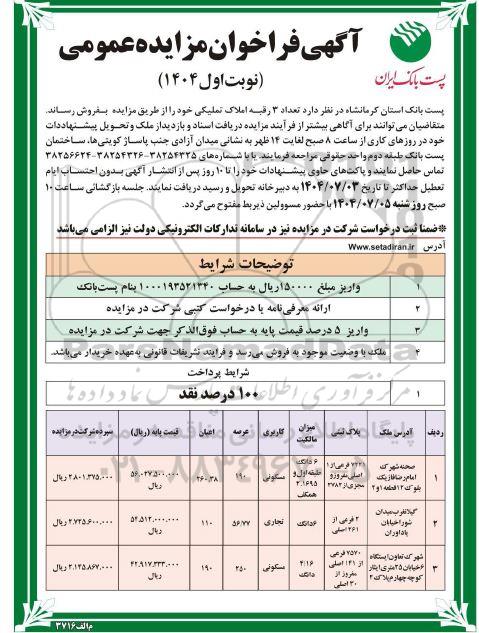 آگهی فراخوان مزایده عمومی
(نوبت اول ۱۴۰۴)
پست بانک ایران
پست بانک استان کرمانشاه در نظر دارد تعداد ۳ رقبه املاک تملیکی خود را از طریق مزایده بفروش رساند.
متقاضیان می‌توانند برای آگاهی بیشتر از فرآیند مزایده دریافت اسناد و بازدید از ملک و تحویل پیشنهادات
خود در روزهای کاری از ساعت ۸ صبح لغایت ۱۴ ظهر به نشانی میدان آزادی جنب پاساژ کویتی‌ها، ساختمان
پست بانک طبقه دوم واحد حقوقی مراجعه فرمایند. یا با شماره‌های ۳۸۲۵۴۳۲۵-۳۸۲۵۴۳۲۶-۳۸۲۵۶۶۲۴
تماس حاصل نمایند و پاکت‌های حاوی پیشنهادات خود را تا ۱۰ روز پس از انتشار آگهی بدون احتساب ایام
تعطیل حداکثر تا تاریخ ۱۴۰۴/۰۷/۰۳ به دبیرخانه تحویل و رسید دریافت نمایند. جلسه بازگشائی ساعت ۱۰
صبح روز شنبه ۱۴۰۴/۰۷/۰۵ با حضور مسوولین ذیربط مفتوح می‌گردد.
*ضمنا ثبت درخواست شرکت در مزایده نیز در سامانه تدارکات الکترونیکی دولت نیز الزامی می‌باشد
آدرس www.setadiran.ir
توضیحات شرایط
۱ واریز مبلغ ۱۵۰۰۰۰۰ ریال به حساب ۱۰۰۰۱۹۳۵۲۱۳۴۰ بنام پست‌بانک
۲ ارائه معرفی‌نامه یا درخواست کتبی شرکت در مزایده
۳ واریز ۵ درصد قیمت پایه به حساب فوق‌الذکر جهت شرکت در مزایده
۴ ملک با وضعیت موجود به فروش می‌رسد و فرایند تشریفات قانونی به‌عهده خریدار می‌باشد.
شرایط پرداخت
۱ ۱۰۰ درصد نقد
ردیف آدرس ملک پلاک ثبتی میزان مالکیت کاربری عرصه اعیان قیمت پایه (ریال) سپرده شرکت در مزایده
۱ صحنه شهرک امام رضا فاز یک بلوک ۱۲ قطعه ۱ و ۲ ۷۲۲۱ فرعی از ۱ اصلی مفروز و مجزی از ۲۷۸۲ ۶ دانگ طبقه اول و ۲.۱۶۹۵ همکف مسکونی ۱۹۰ ۲۶۰.۳۸ ۵۶.۰۲۷.۵۰۰.۰۰۰ ۲.۸۰۱.۳۷۵.۰۰۰ ریال
۲ گیلانغرب میدان شورا خیابان پاداوران ۲ فرعی از ۲۶۱ اصلی ۶ دانگ تجاری ۵۶/۷۷ ۱۱۰ ۵۴.۵۱۲.۰۰۰.۰۰۰ ریال ۲.۷۲۵.۶۰۰.۰۰۰ ریال
۳ شهرک تعاون ایستگاه ۶ خیابان ۲۵ متری ایثار کوچه چهارم پلاک ۲ ۷۵۷۰ فرعی از ۱۴۱ اصلی مفروز از ۳۰ اصلی ۴/۱۶ دانگ مسکونی ۲۵۰ ۱۹۰ ۴۲.۹۱۷.۳۳۳.۰۰۰ ریال ۲.۱۴۵.۸۶۷.۰۰۰ ریال
م الف ۳۷۱۶
ParsNamadData
۰۲۱-۸۸۳۴۹۶۷۰-۵